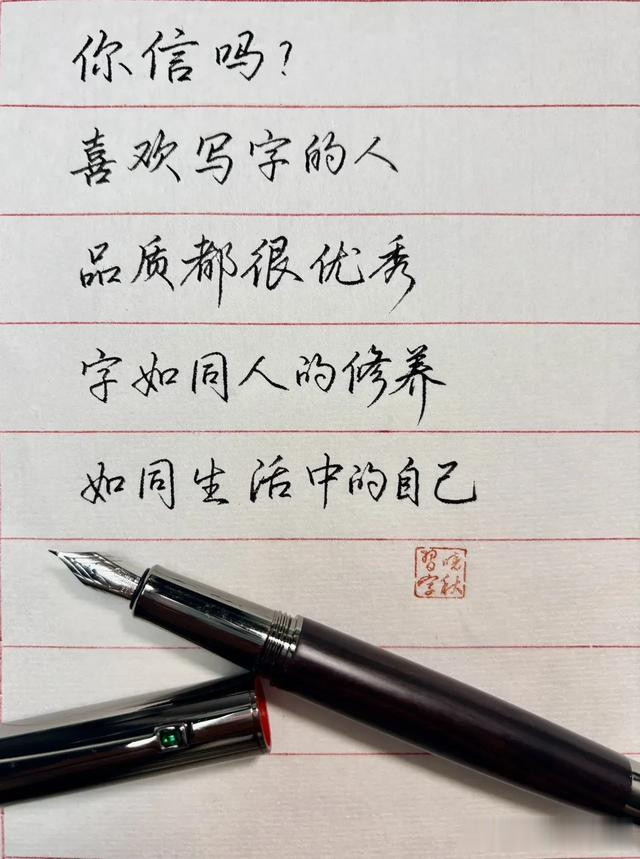 你信吗?
喜欢写字的人
品质都很优秀
字如同人的修养
如同生活中的自己
晓秋
习字